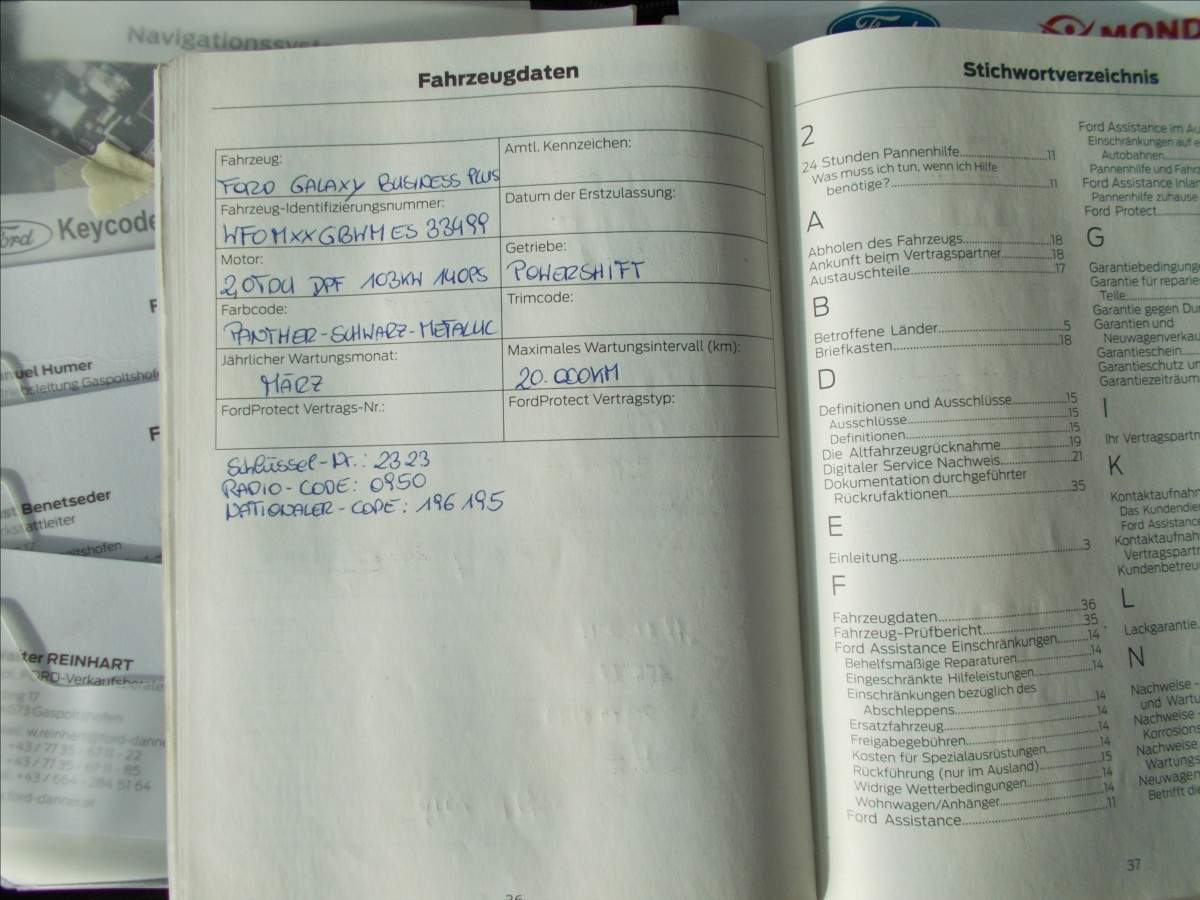 Navigationssyste
Ford
MOND
Ford
Keycode
uel Humer
bsleitung Gaspoltshof
st Benetseder
rkstattleiter
poltshofen
ter REINHART
FORD-Verkaufsberater
4673 Gaspoltshofen
w.reinhart@ford-danne
+43/77 35 - 67 11 - 22
+43/77 35 - 67 11 - 85
+43/664 - 284 51 64
ford-danner.at
Fahrzeugdaten
Fahrzeug:
FORD GALAXY BUSINESS PLUS
Amtl. Kennzeichen:
Fahrzeug-Identifizierungsnummer:
WFOMXXGBWMES 33499
Datum der Erstzulassung:
Motor:
2,0TDCI DPF 103KW 140PS
Getriebe:
POWERSHIFT
Farbcode:
PANTHER-SCHWARZ-METALLIC
Trimcode:
Jährlicher Wartungsmonat:
MÄRZ
Maximales Wartungsintervall (km):
20.000KM
FordProtect Vertrags-Nr.:
FordProtect Vertragstyp:
Schlüssel-Nr.: 2323
RADIO-CODE: 0950
NATIONALER-CODE: 196 195
36
Stichwortverzeichnis
2
24 Stunden Pannenhilfe....................11
Was muss ich tun, wenn ich Hilfe
benötige?....................11
A
Abholen des Fahrzeugs....................18
Ankunft beim Vertragspartner....................18
Austauschteile....................17
B
Betroffene Länder....................5
Briefkasten....................18
D
Definitionen und Ausschlüsse....................15
Ausschlüsse....................15
Definitionen....................15
Die Altfahrzeugrücknahme....................19
Digitaler Service Nachweis....................21
Dokumentation durchgeführter
Rückrufaktionen....................35
E
Einleitung....................3
F
Fahrzeugdaten....................36
Fahrzeug-Prüfbericht....................35
Ford Assistance Einschränkungen....................14
Behelfsmäßige Reparaturen....................14
Eingeschränkte Hilfeleistungen....................14
Einschränkungen bezüglich des
Abschleppens....................14
Ersatzfahrzeug....................14
Freigabegebühren....................14
Kosten für Spezialausrüstungen....................14
Rückführung (nur im Ausland)....................15
Widrige Wetterbedingungen....................14
Wohnwagen/Anhänger....................14
Ford Assistance....................11
Ford Assistance im Au
Einschränkungen auf e
Autobahnen
Pannenhilfe und Fahrz
Ford Assistance Inlan
Pannenhilfe zuhause
Ford Protect
G
Garantiebedingunge
Garantie für reparie
Teile
Garantie gegen Dur
Garantien und
Neuwagenverkau
Garantieschein
Garantieschutz un
Garantiezeiträum
I
Ihr Vertragspartn
K
Kontaktaufnahm
Das Kundendie
Ford Assistanc
Kontaktaufnah
Vertragspartn
Kundenbetreu
L
Lackgarantie
N
Nachweise -
und Wartu
Nachweise -
Korrosions
Nachweise
Wartungs
Neuwagen
Betrifft die
37